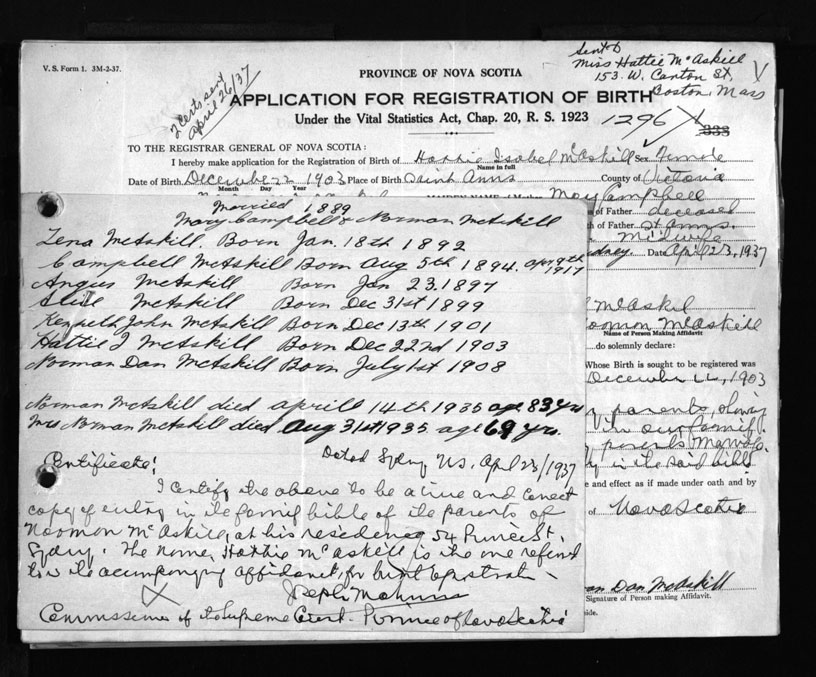 V. S. Form 1. 3M-2-37.
2 Certs sent
April 26/37
Sent to
Miss Hattie McAskill
153. W. Canton St,
Boston, Mass
PROVINCE OF NOVA SCOTIA
APPLICATION FOR REGISTRATION OF BIRTH
Under the Vital Statistics Act, Chap. 20, R. S. 1923
1296
333
TO THE REGISTRAR GENERAL OF NOVA SCOTIA:
I hereby make application for the Registration of Birth of Hattie Isabel McAskill Sex Female
Name in full
Date of Birth December 22 1903 Place of Birth Saint Anns County of Victoria
Month Day Year
May Campbell
of Father deceased
th of Father St Anns.
Midwife
Sydney. Date April 23, 1937
Married 1889
Mary Campbell & Norman McAskill
Lena McAskill. Born Jan. 18th 1892
Campbell McAskill Born Aug 5th 1894. Apr 9th 1917
Angus McAskill Born Jan 23, 1897
McAskill Born Dec 31st 1899
Kenneth John McAskill Born Dec 13th 1901
Hattie I McAskill Born Dec 22nd 1903
Norman Dan McAskill Born July 1st 1908
Norman McAskill died Aprill 14th 1935 age 83 yrs
Mrs Norman McAskill died Aug 31st 1935 age 69 yrs.
Dated Sydney N.S. April 23/1937
Certificate:
I certify the above to be a true and correct
copy of entry in the family bible of the parents of
Norman McAskill, at his residence 54 Prince St.
Sydney. The name Hattie McAskill is the one referred
to in the accompanying affidavit for birth registration
X
Commissioner of the Supreme Court - Province of Nova Scotia
McAskil
Norman McAskill
Name of Person Making Affidavit.
do solemnly declare:
Whose Birth is sought to be registered was
December 22, 1903
parents, Showing
in our family
parents
in the said bible
e and effect as if made under oath and by
of Nova Scotia
Dan McAskill
Signature of Person making Affidavit.
side.